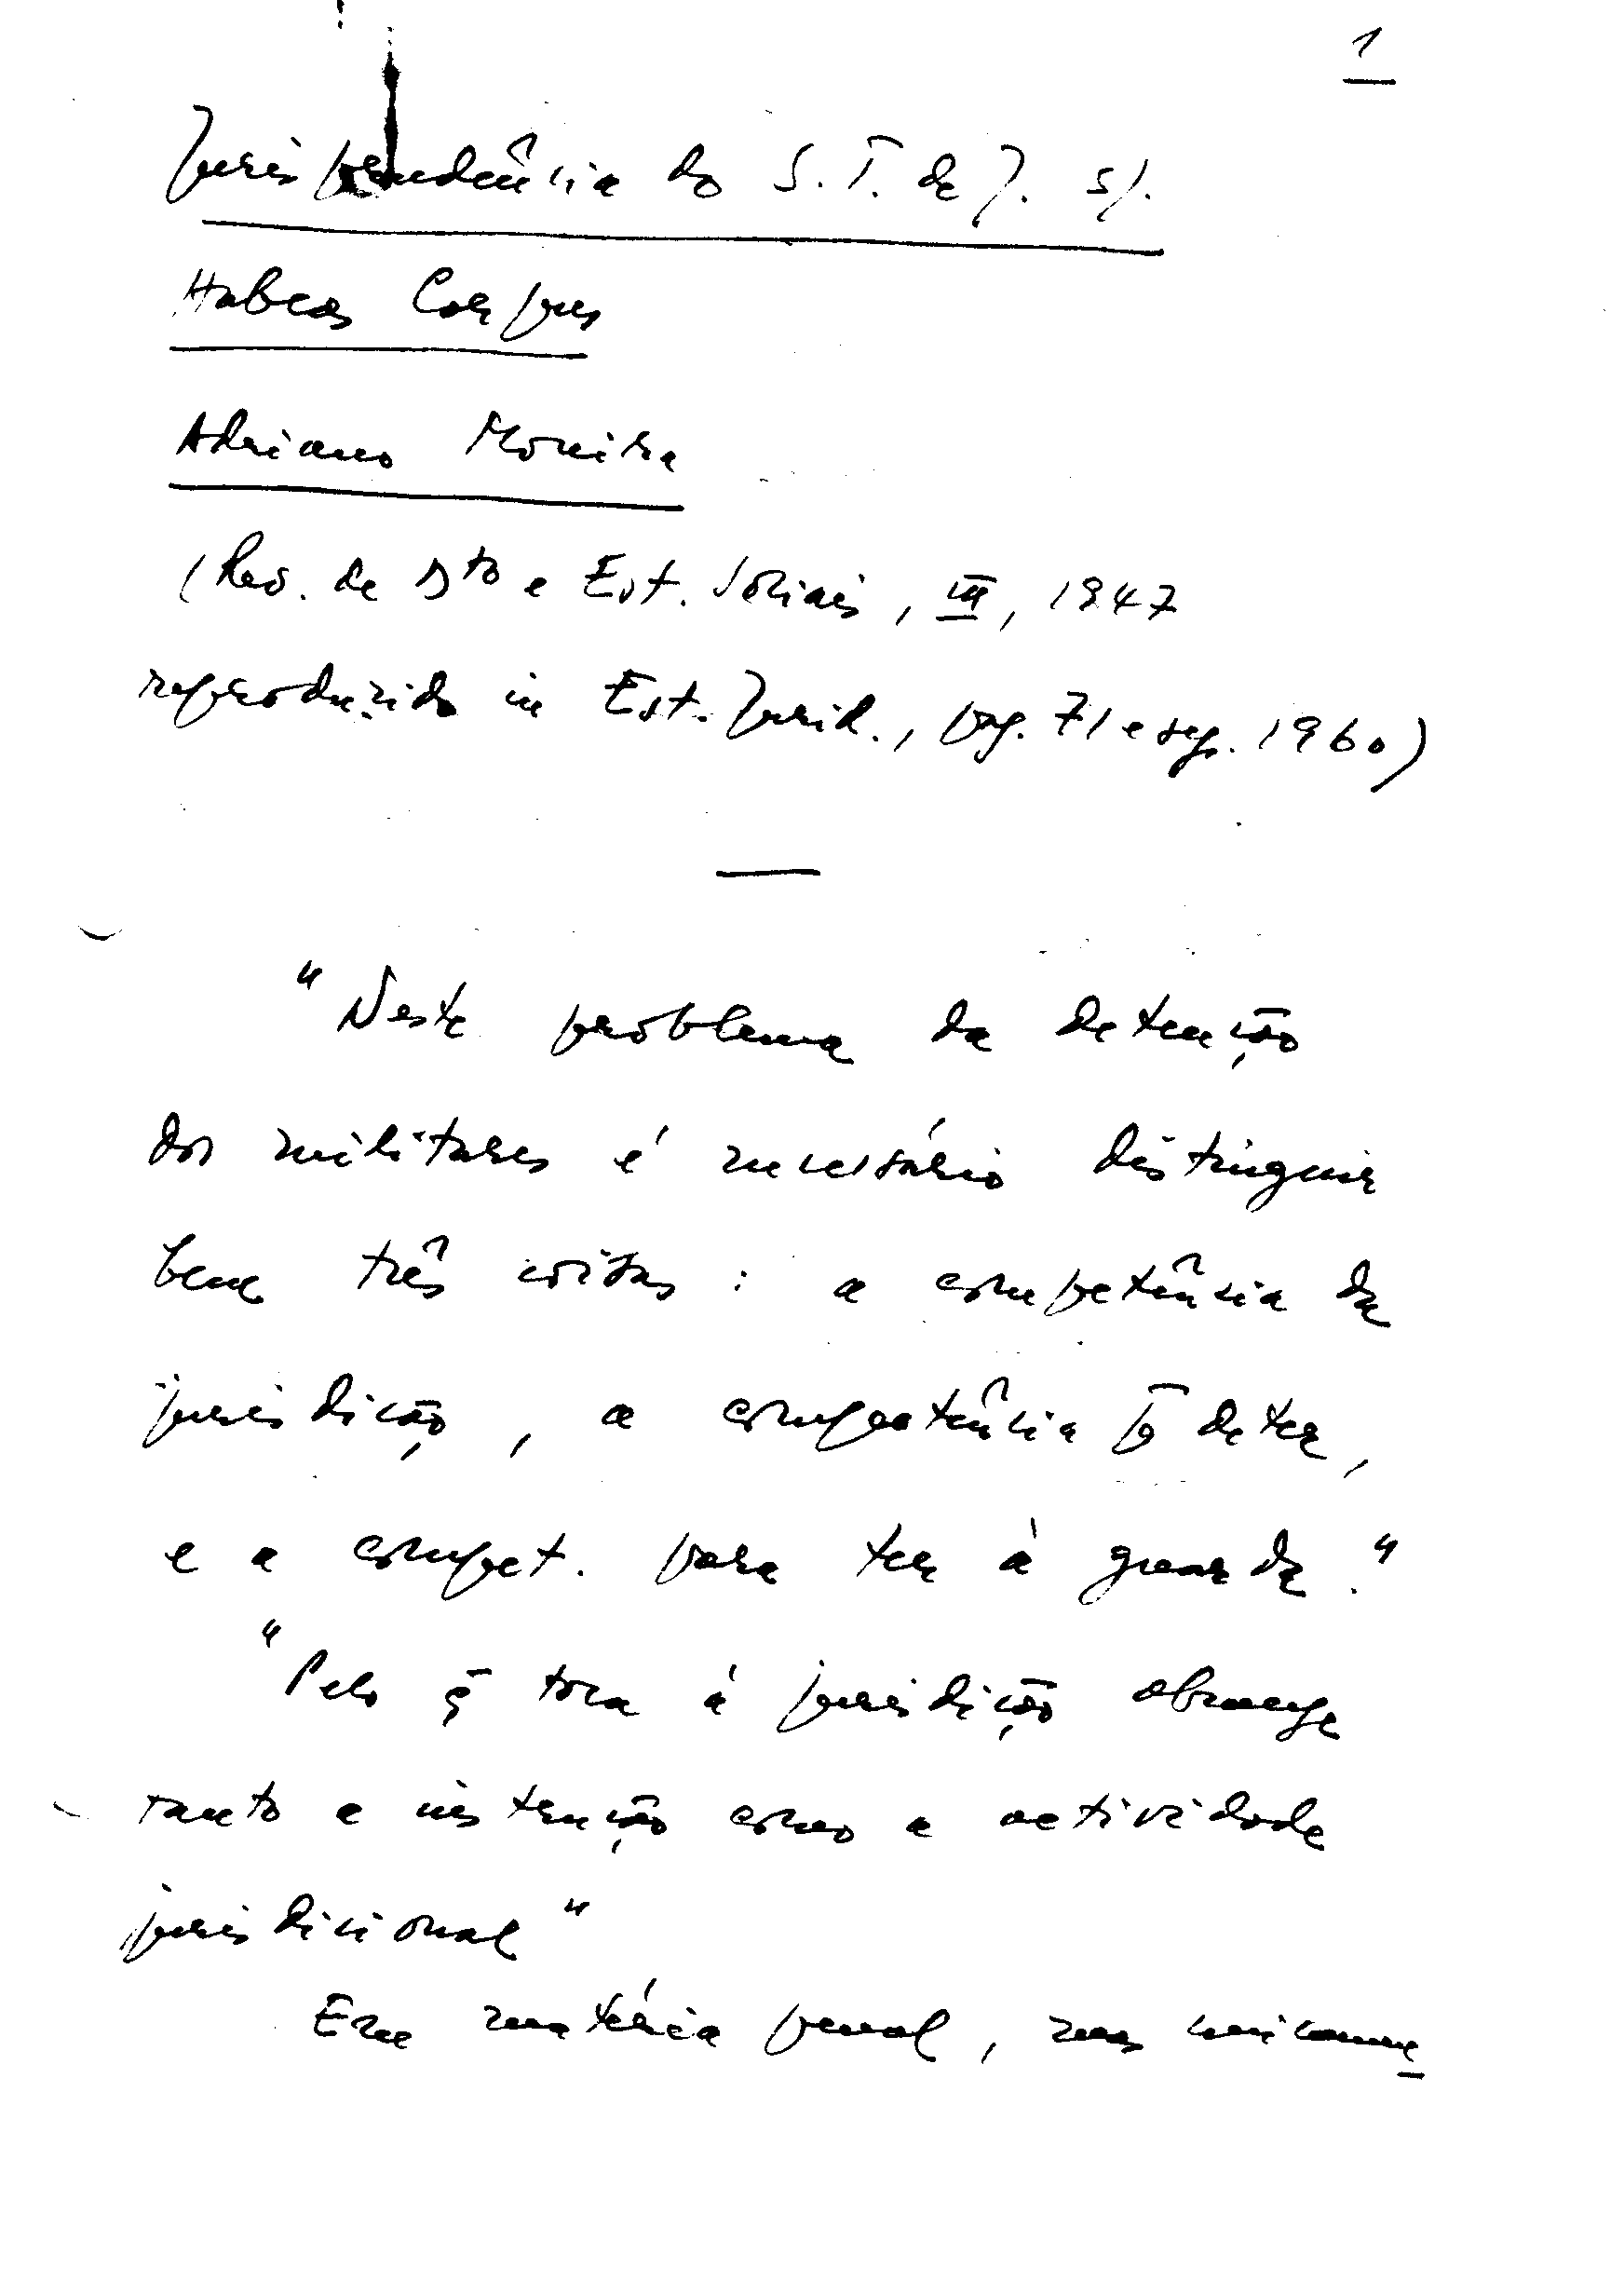 1
Jurisprudência do S. T. de J. s/.
Habeas Corpus
Adriano Moreira
(Rev. de Dto e Est. Sociais, III, 1947
reproduzido in Est. Juríd., pag. 71 e seg. 1960)
"Neste problema da detenção
dos militares é necessário distinguir
bem três coisas : a competência da
jurisdição, a competência pª deter,
e a compet. para ter à guarda."
"Pelo q̄ toca à jurisdição abrange
tanto a instrução como a actividade
jurisdicional"
Em matéria penal, mas unicame